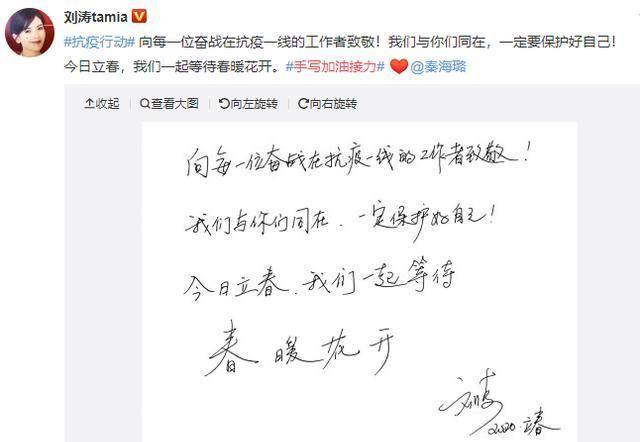 刘涛tamia
#抗疫行动# 向每一位奋战在抗疫一线的工作者致敬！我们与你们同在，一定要保护好自己！
今日立春，我们一起等待春暖花开。#手写加油接力# @秦海璐
收起 查看大图 向左旋转 向右旋转
向每一位奋战在抗疫一线的工作者致敬！
我们与你们同在．一定保护好自己！
今日立春．我们一起等待
春暖花开
刘涛
2020.立春